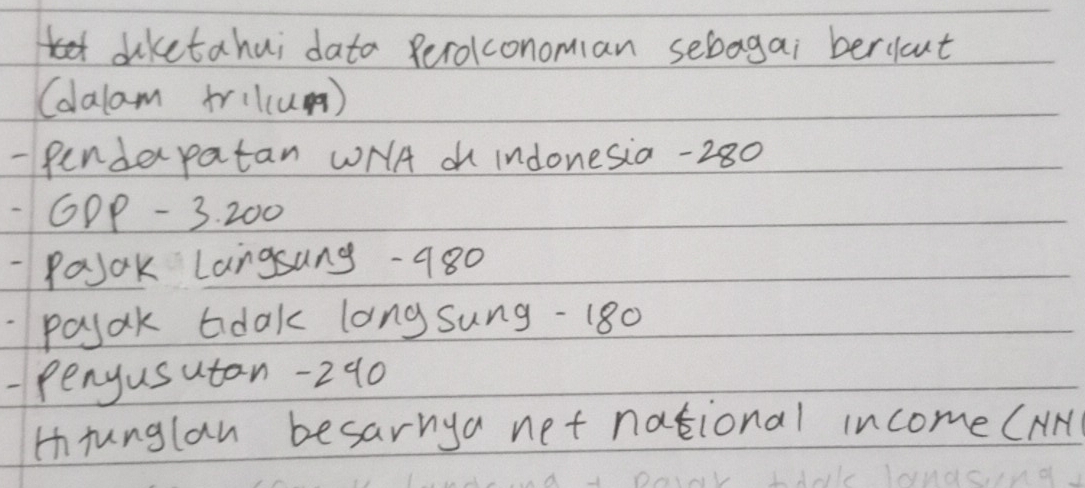 diketahui data Perekonomian sebagai berikut
(dalam triliun)
- Pendapatan WNA di indonesia - 280
- GDP - 3.200
- Pajak Langsung - 480
- pajak tidak langsung - 180
- Penyusutan - 240
Hitunglah besarnya net national income (NNI
pajak tidak langsung